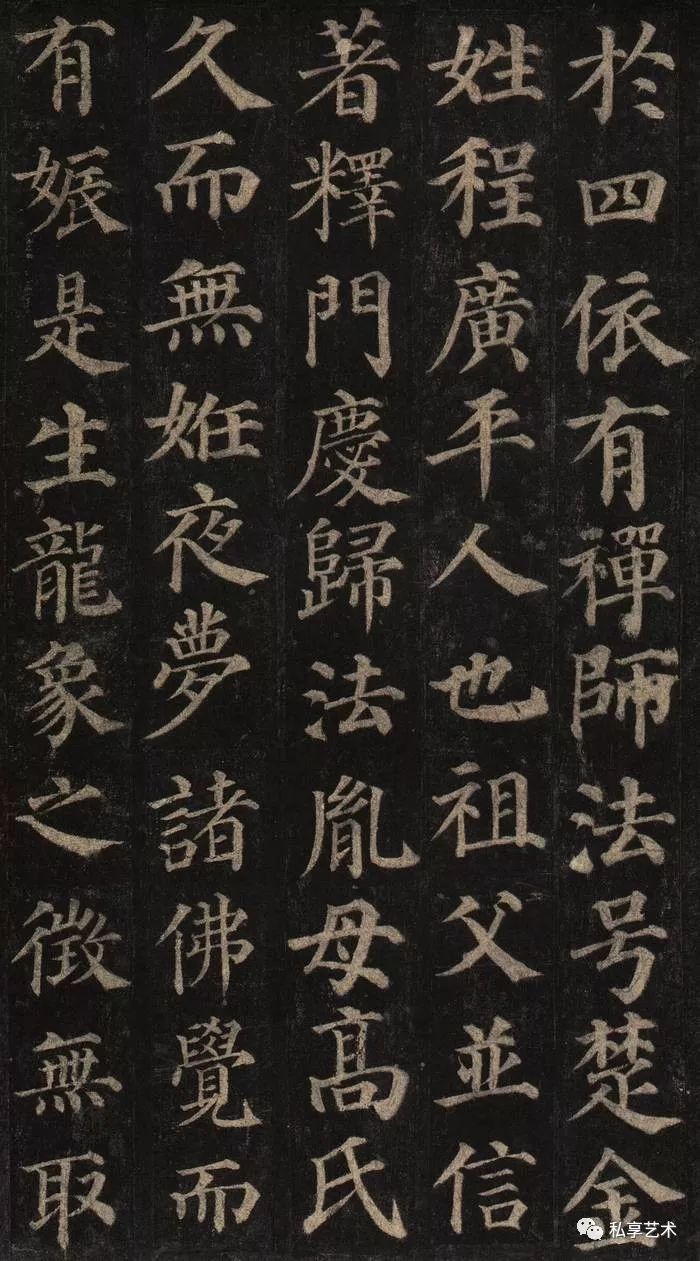 於四依有禪師法号楚金
姓程廣平人也祖父並信
著釋門慶歸法胤母高氏
久而無姙夜夢諸佛覺而
有娠是生龍象之徵無取
私享艺术